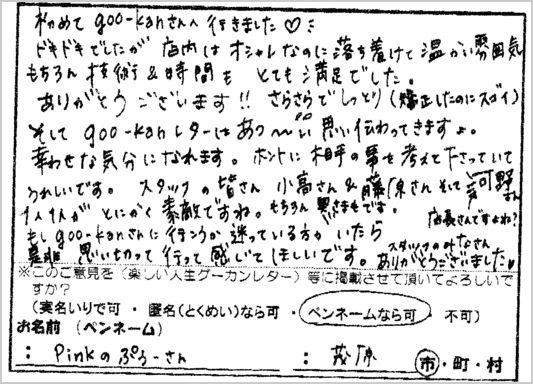 初めてgoo-kanさんへ行きました♡
ドキドキでしたが店内はオシャレなのに落ち着けて温かい雰囲気
もちろん技術&時間もとても満足でした。
ありがとうございます!! さらさらでしっとり(矯正したのにスゴイ)
そしてgoo-kanレターはあつ〜い思い伝わってきますよ。
幸わせな気分になれます。ホントに相手の事を考えて下さっていて
うれしいです。スタッフの皆さん 小高さん&藤原さんそして 可野さん
1人1人がとにかく素敵ですね。もちろん です。 店長さんですよね?
もしgoo-kanさんに行こうか迷っている方がいたら
是非 思い切って行って感じてほしいです。スタッフの皆なさんありがとうございました
※このご意見を(楽しい人生グーカンレター)等に掲載させて頂いてよろしいで
すか?
(実名いりで可・匿名(とくめい)なら可・ペンネームなら可・不可)
お名前(ペンネーム)
:Pinkのぷぅーさん :茂原 市・町・村